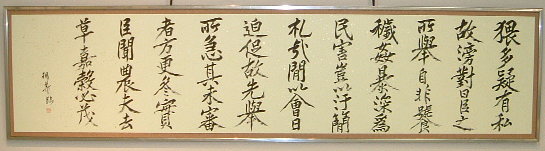 猥多疑有私
故滂對曰臣之
所舉自非饕
穢姦暴深為
民害豈以汙簡
札哉閒以會日
迫促故先舉
所急其未審
者方更參實
臣聞農夫去
草嘉穀必茂